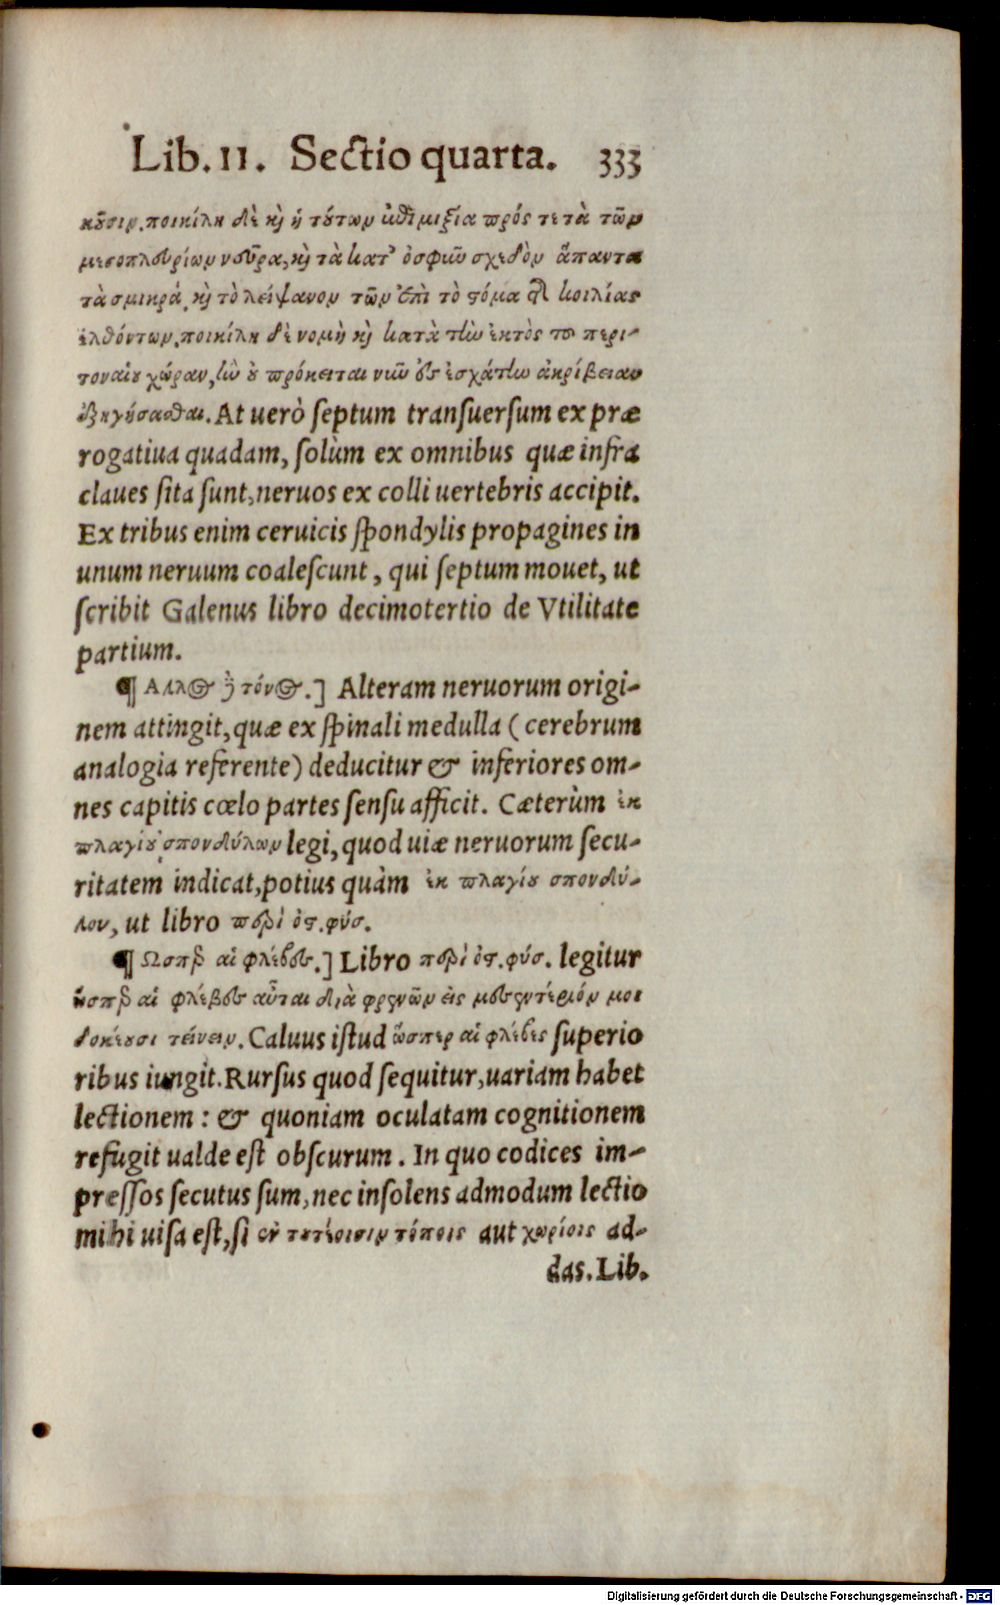 Lib. II. Sectio quarta. 333
κοῦσιν. ποικίλη δὲ καὶ ἡ τούτων ἐπιμιξία πρός τε τὰ τῶν
μεσοπλευρίων νεῦρα, καὶ τὰ κατ' ὀσφῦν σχεδὸν ἅπαντα
τὰ σμικρὰ, καὶ τὸ λείψανον τῶν ἐπὶ τὸ στόμα τῆς κοιλίας
ἐλθόντων. ποικίλη δὲ νομὴ καὶ κατὰ τὴν ἐκτὸς τοῦ περι-
τοναίου χώραν, ἣν οὐ πρόκειται νῦν εἰς ἐσχάτην ἀκρίβειαν
ἐξηγήσασθαι. At uerò septum transuersum ex præ
rogatiua quadam, solùm ex omnibus quæ infra
claues sita sunt, neruos ex colli uertebris accipit.
Ex tribus enim ceruicis spondylis propagines in
unum neruum coalescunt, qui septum mouet, ut
scribit Galenus libro decimotertio de Vtilitate
partium.
¶ Αλλος δὲ τόνος.] Alteram neruorum origi-
nem attingit, quæ ex spinali medulla (cerebrum
analogia referente) deducitur & inferiores om-
nes capitis cœlo partes sensu afficit. Cæterùm ἐκ
πλαγίου σπονδύλων legi, quod uiæ neruorum secu-
ritatem indicat, potius quàm ἐκ πλαγίου σπονδύ-
λου, ut libro περὶ ὀστ. φύσ.
¶ Ωσπερ αἱ φλέβες.] Libro περὶ ὀστ. φύσ. legitur
ὥσπερ αἱ φλέβες αὗται διὰ φρενῶν εἰς μεσεντέριόν μοι
δοκέουσι τείνειν. Caluus istud ὥσπερ αἱ φλέβες superio
ribus iungit. Rursus quod sequitur, uariam habet
lectionem: & quoniam oculatam cognitionem
refugit ualde est obscurum. In quo codices im-
pressos secutus sum, nec insolens admodum lectio
mihi uisa est, si ἐν τουτέοισιν τόποις aut χωρίοις ad-
das. Lib.
Digitalisierung gefördert durch die Deutsche Forschungsgemeinschaft - DFG